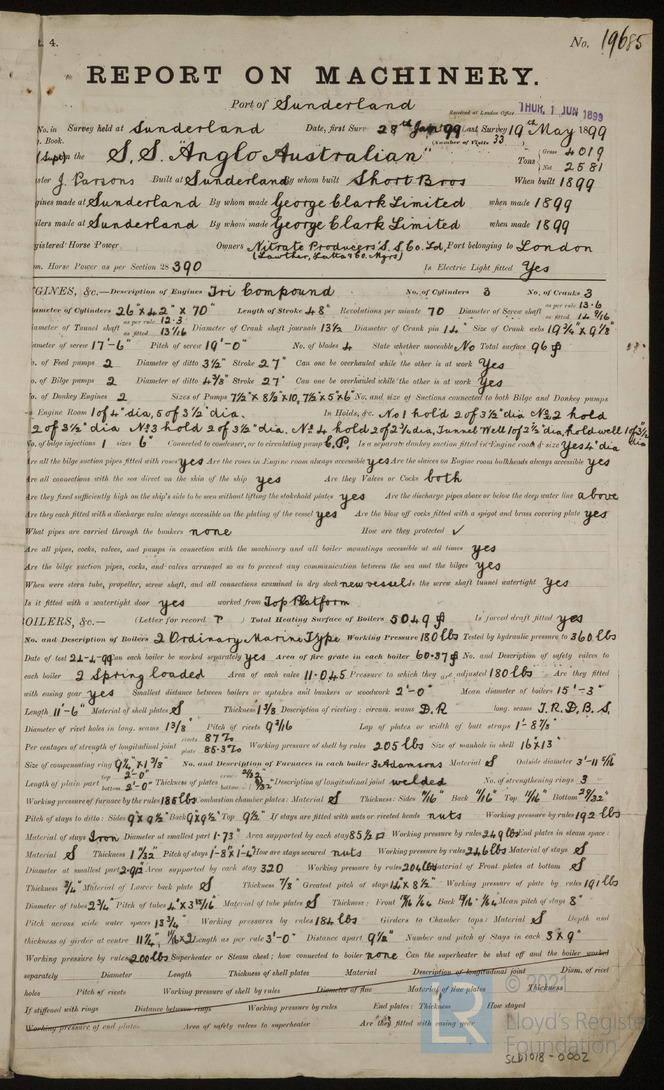 t. 4.
No. 19685
REPORT ON MACHINERY.
Port of Sunderland
Received at London Office THUR. 1 JUN 1899
No. in Survey held at Sunderland Date, first Surv 28th Jany 99 Last Survey 19th May 1899
Book. (Number of Visits 33)
(Supt) on the S.S. "Anglo Australian" Tons Gross 4019 Net 2581
ster J. Parsons Built at Sunderland By whom built Short Bros When built 1899
gines made at Sunderland By whom made George Clark Limited when made 1899
ilers made at Sunderland By whom made George Clark Limited when made 1899
gistered Horse Power Owners Nitrate Producers S.S. Co. Ld, Port belonging to London
(Lawther, Latta & Co. Mgrs)
m. Horse Power as per Section 28 390 Is Electric Light fitted Yes
GINES, &c.—Description of Engines Tri Compound No. of Cylinders 3 No. of Cranks 3
iameter of Cylinders 26" x 42" x 70" Length of Stroke 48" Revolutions per minute 70 Diameter of Screw shaft as per rule 13.6 as fitted 14 9/16
iameter of Tunnel shaft as per rule 12.3 as fitted 13 1/16 Diameter of Crank shaft journals 13 1/2 Diameter of Crank pin 14" Size of Crank webs 19 3/4" x 9 1/8"
iameter of screw 17'-6" Pitch of screw 19'-0" No. of blades 4 State whether moveable No Total surface 96
o. of Feed pumps 2 Diameter of ditto 3 1/2" Stroke 27" Can one be overhauled while the other is at work Yes
o. of Bilge pumps 2 Diameter of ditto 4 3/8" Stroke 27" Can one be overhauled while the other is at work Yes
o. of Donkey Engines 2 Sizes of Pumps 7 1/2" x 8 1/2" x 10, 7 1/2 x 5" x 6" No. and size of Suctions connected to both Bilge and Donkey pumps
Engine Room 1 of 4" dia, 5 of 3 1/2" dia. In Holds, &c. No 1 hold 2 of 3 1/2" dia No 2 hold
2 of 3 1/2" dia No 3 hold 2 of 3 1/2" dia. No 4 hold 2 of 2 1/2 dia, Tunnel Well 1 of 2 1/2 dia, hold well 1 of 2 1/2 dia
No. of bilge injections 1 sizes 6" Connected to condenser, or to circulating pump C.P. Is a separate donkey suction fitted in Engine room & size Yes 4" dia
Are all the bilge suction pipes fitted with roses yes Are the roses in Engine room always accessible yes Are the sluices on Engine room bulkheads always accessible yes
Are all connections with the sea direct on the skin of the ship yes Are they Valves or Cocks both
Are they fixed sufficiently high on the ship's side to be seen without lifting the stokehold plates yes Are the discharge pipes above or below the deep water line above
Are they each fitted with a discharge valve always accessible on the plating of the vessel yes Are the blow off cocks fitted with a spigot and brass covering plate yes
What pipes are carried through the bunkers none How are they protected ✓
Are all pipes, cocks, valves, and pumps in connection with the machinery and all boiler mountings accessible at all times yes
Are the bilge suction pipes, cocks, and valves arranged so as to prevent any communication between the sea and the bilges yes
When were stern tube, propeller, screw shaft, and all connections examined in dry dock new vessel Is the screw shaft tunnel watertight yes
Is it fitted with a watertight door yes worked from Top Platform
OILERS, &c.— (Letter for record r) Total Heating Surface of Boilers 5049 Is forced draft fitted yes
No. and Description of Boilers 2 Ordinary Marine Type Working Pressure 180 lbs Tested by hydraulic pressure to 360 lbs
Date of test 24-4-99 Can each boiler be worked separately yes Area of fire grate in each boiler 60.37 No. and Description of safety valves to
each boiler 2 Spring loaded Area of each valve 11.045 Pressure to which they are adjusted 180 lbs Are they fitted
with easing gear yes Smallest distance between boilers or uptakes and bunkers or woodwork 2'-0" Mean diameter of boilers 15'-3"
Length 11'-6" Material of shell plates S Thickness 1 3/8 Description of riveting: circum. seams D.R long. seams T.R.D.B.S.
Diameter of rivet holes in long. seams 1 3/8" Pitch of rivets 9 3/16 Lap of plates or width of butt straps 1'-8 7/8"
Per centages of strength of longitudinal joint rivets 87% plate 85.3% Working pressure of shell by rules 205 lbs Size of manhole in shell 16" x 13"
Size of compensating ring 9 1/4" x 1 3/8" No. and Description of Furnaces in each boiler 3 Adamsons Material S Outside diameter 3'-11 5/16"
Length of plain part top 2'-0" bottom 2'-0" Thickness of plates Description of longitudinal joint welded No. of strengthening rings 3
Working pressure of furnace by the rules 185 lbs Combustion chamber plates: Material S Thickness: Sides 11/16" Back 11/16" Top 11/16" Bottom 29/32"
Pitch of stays to ditto: Sides 9" x 9 1/2" Back 9" x 9 1/2" Top 9 1/2" If stays are fitted with nuts or riveted heads nuts Working pressure by rules 192 lbs
Material of stays Iron Diameter at smallest part 1.73" Area supported by each stay 85 1/2 Working pressure by rules 249 lbs End plates in steam space:
Material S Thickness 1 7/32" Pitch of stays 1'-8" x 1'-4" How are stays secured nuts Working pressure by rules 246 lbs Material of stays S
Diameter at smallest part 2.92 Area supported by each stay 320 Working pressure by rules 204 lbs Material of Front plates at bottom S
Thickness 3/4" Material of Lower back plate S Thickness 7/8" Greatest pitch of stays 14" x 8 1/2" Working pressure of plate by rules 191 lbs
Diameter of tubes 2 3/4" Pitch of tubes 4" x 3 15/16" Material of tube plates S Thickness: Front Back Mean pitch of stays 8"
Pitch across wide water spaces 13 3/4" Working pressures by rules 184 lbs Girders to Chamber tops: Material S Depth and
thickness of girder at centre 11 1/4" Length as per rule 3'-0" Distance apart 9 1/2" Number and pitch of Stays in each 3 x 9"
Working pressure by rules 200 lbs Superheater or Steam chest; how connected to boiler none Can the superheater be shut off and the boiler worked
separately Diameter Length Thickness of shell plates Material Description of longitudinal joint Diam. of rivet
holes Pitch of rivets Working pressure of shell by rules Diameter of flue Material of flue plates Thickness
If stiffened with rings Distance between rings Working pressure by rules End plates: Thickness How stayed
Working pressure of end plates Area of safety valves to superheater Are they fitted with easing gear
© 2021
LR
Lloyd's Register
Foundation
SLD1018-0002